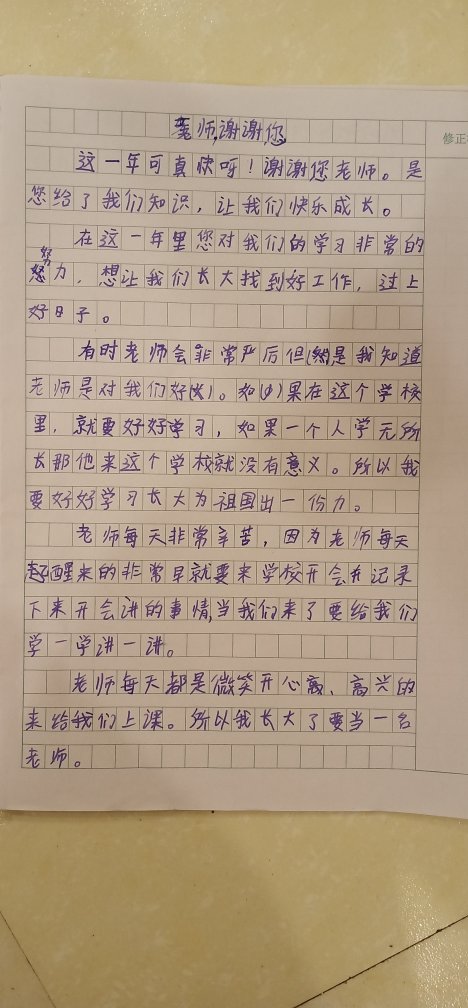 老师,谢谢您
修正
这一年可真快呀！谢谢您老师。是
您给了我们知识，让我们快乐成长。
在这一年里您对我们的学习非常的
努
力，想让我们长大找到好工作，过上
好日子。
有时老师会非常严厉但是我知道
老师是对我们好。如果在这个学校
里，就要好好学习，如果一个人学无所
长那他来这个学校就没有意义。所以我
要好好学习长大为祖国出一份力。
老师每天非常辛苦，因为老师每天
起醒来的非常早就要来学校开会并记录
下来开会讲的事情,当我们来了要给我们
学一学讲一讲。
老师每天都是微笑开心、高兴的
来给我们上课。所以我长大了要当一名
老师。